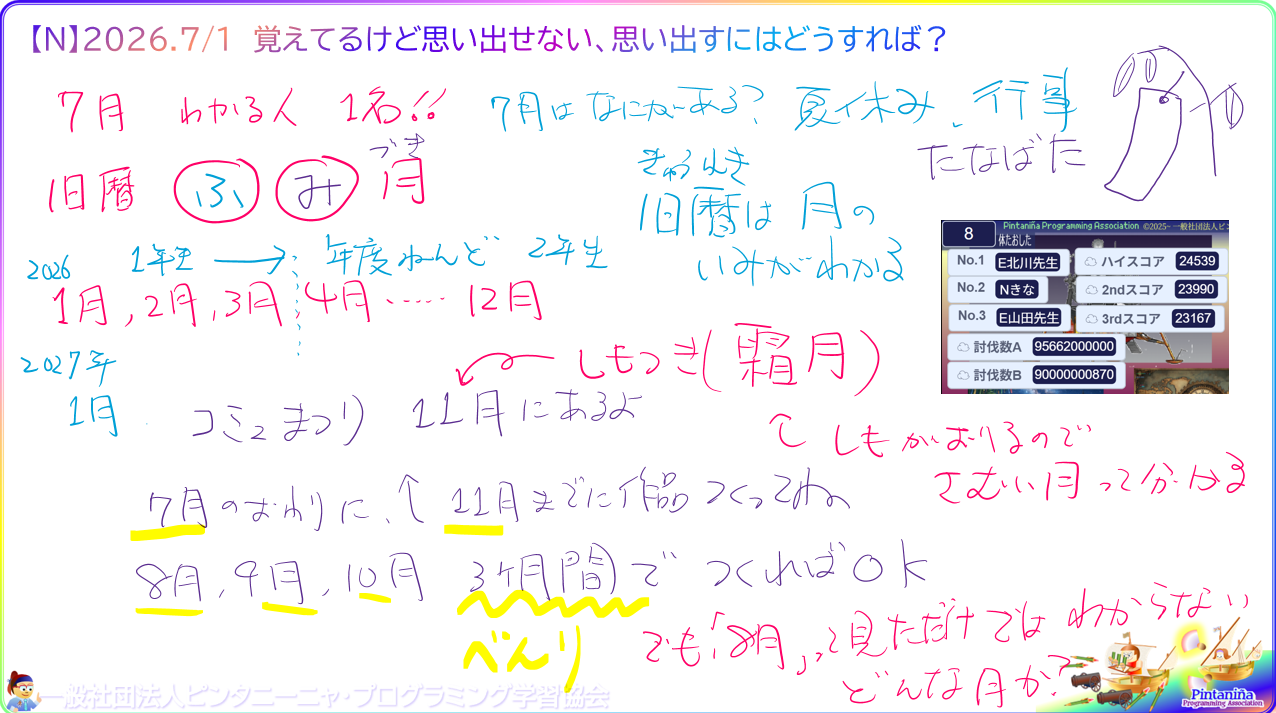 【N】2026.7/1 覚えてるけど思い出せない、思い出すにはどうすれば？
7月 わかる人 1名!!
7月は なにがある? 夏休み、行事
たなばた
旧暦 ふみ月
づき
きゅうれき
旧暦は 月の
いみがわかる
2026 1年生 → 年度ねんど 2年生
1月, 2月, 3月, 4月 ...... 12月
2027年
1月
しもつき(霜月)
コミュまつり 11月にあるよ
↑ しもがおりるので
さむい月って分かる
7月のおわりに、↑ 11月までに作品つくってね
8月, 9月, 10月 3ヶ月間で つくればOK
べんり
でも「8月」って見ただけではわからない
どんな月か?
Pintaniña Programming Association ©2025- 一般社団法人ピン
8 体たおした
No.1 E北川先生 ハイスコア 24539
No.2 Nきな 2ndスコア 23990
No.3 E山田先生 3rdスコア 23167
討伐数A 95662000000
討伐数B 90000000870
一般社団法人ピンタニーニャ・プログラミング学習協会
Pintaniña
Programming Association